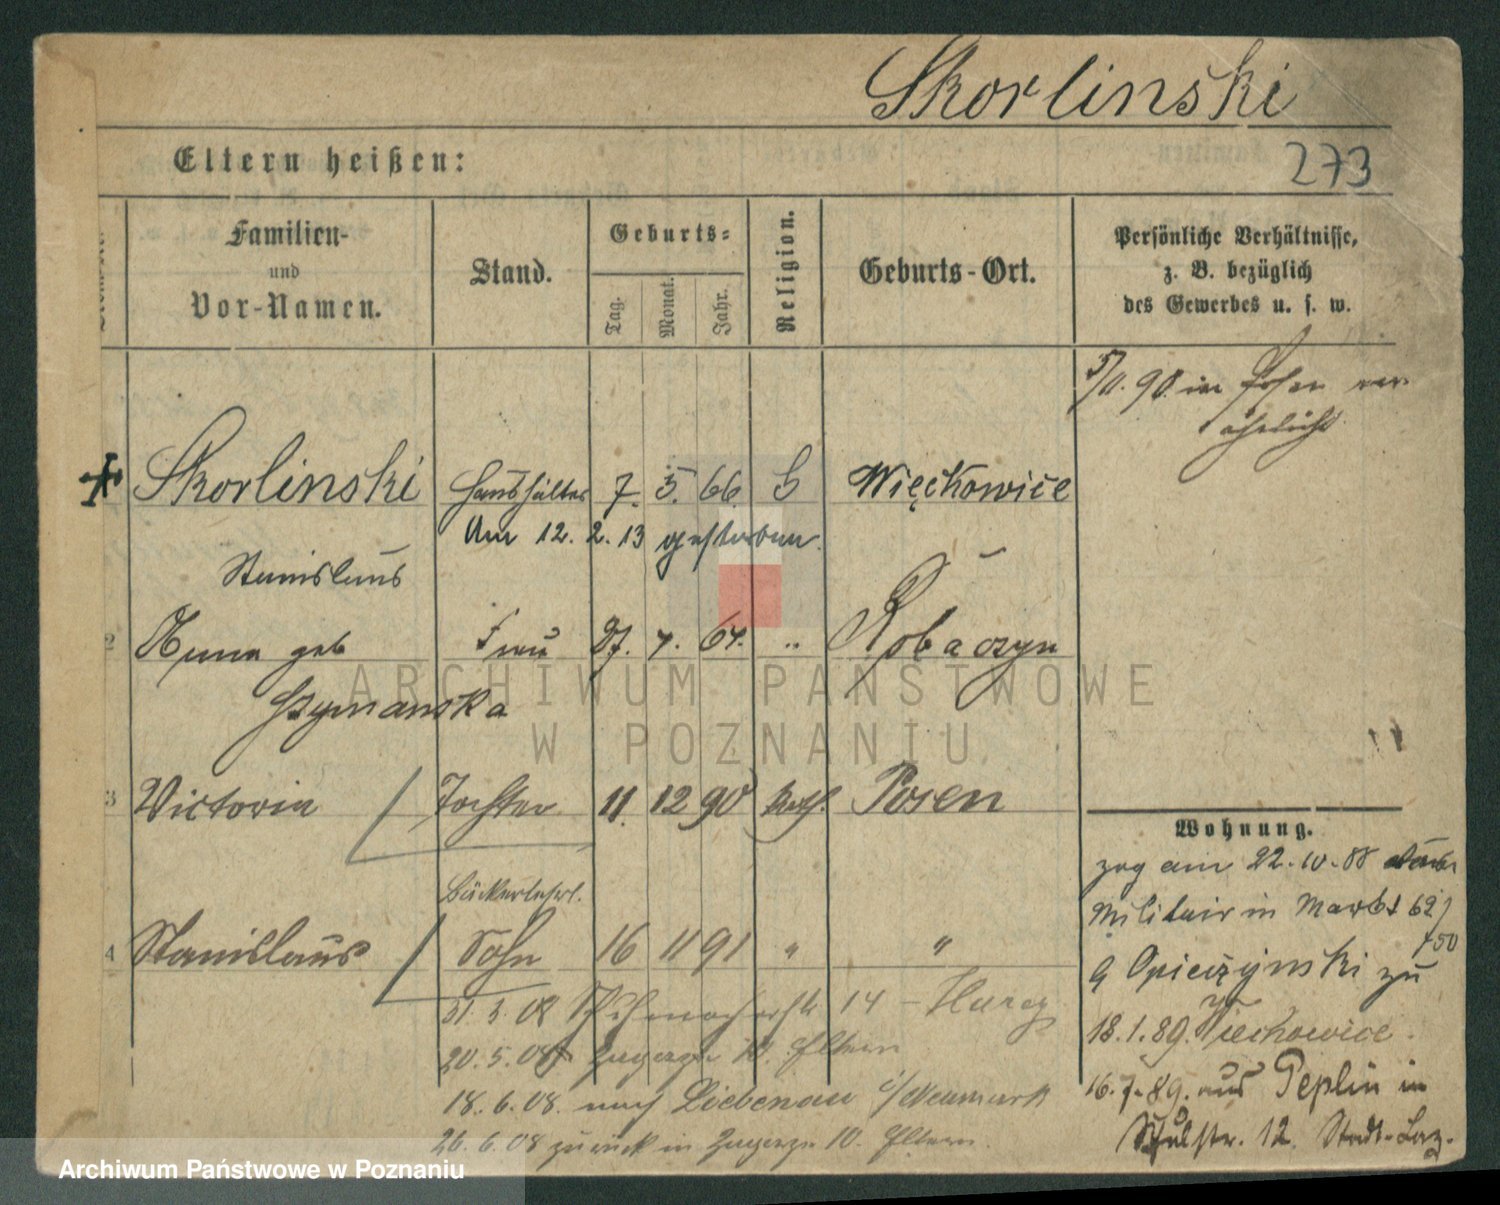 Skorlinski
273
Eltern heißen:
Familien-
und
Vor-Namen.
Stand.
Geburts-
Tag.
Monat.
Jahr.
Religion.
Geburts-Ort.
Persönliche Verhältnisse,
z. B. bezüglich
des Gewerbes u. s. w.
in Posen ver-
ehelicht
Skorlinski Haushälter 7. 5. 66. Więckowice
Am 12. 2. 13 gestorben.
Stanislaus
2 Anna geb Frau 27. 7. 64. "
Szymanska
3 Victoria Tochter 11. 12 90 kath. Posen
Bäckerlehrl.
4 Stanislaus Sohn 16 11 91 " "
14 -
20. 5. 08 10. Eltern
18. 6. 08. nach Liebenau i/Neumark
26. 6. 08 zurück in 10. Eltern.
Wohnung.
zog am 22.10.88 vom
Militair in Markt 62
Opieczynski zu
18.1.89. Wiechowice.
16.7.89. aus Peplin in
Schulstr. 12. Stadt-Laz.
ARCHIWUM PAŃSTWOWE
W POZNANIU
Archiwum Państwowe w Poznaniu